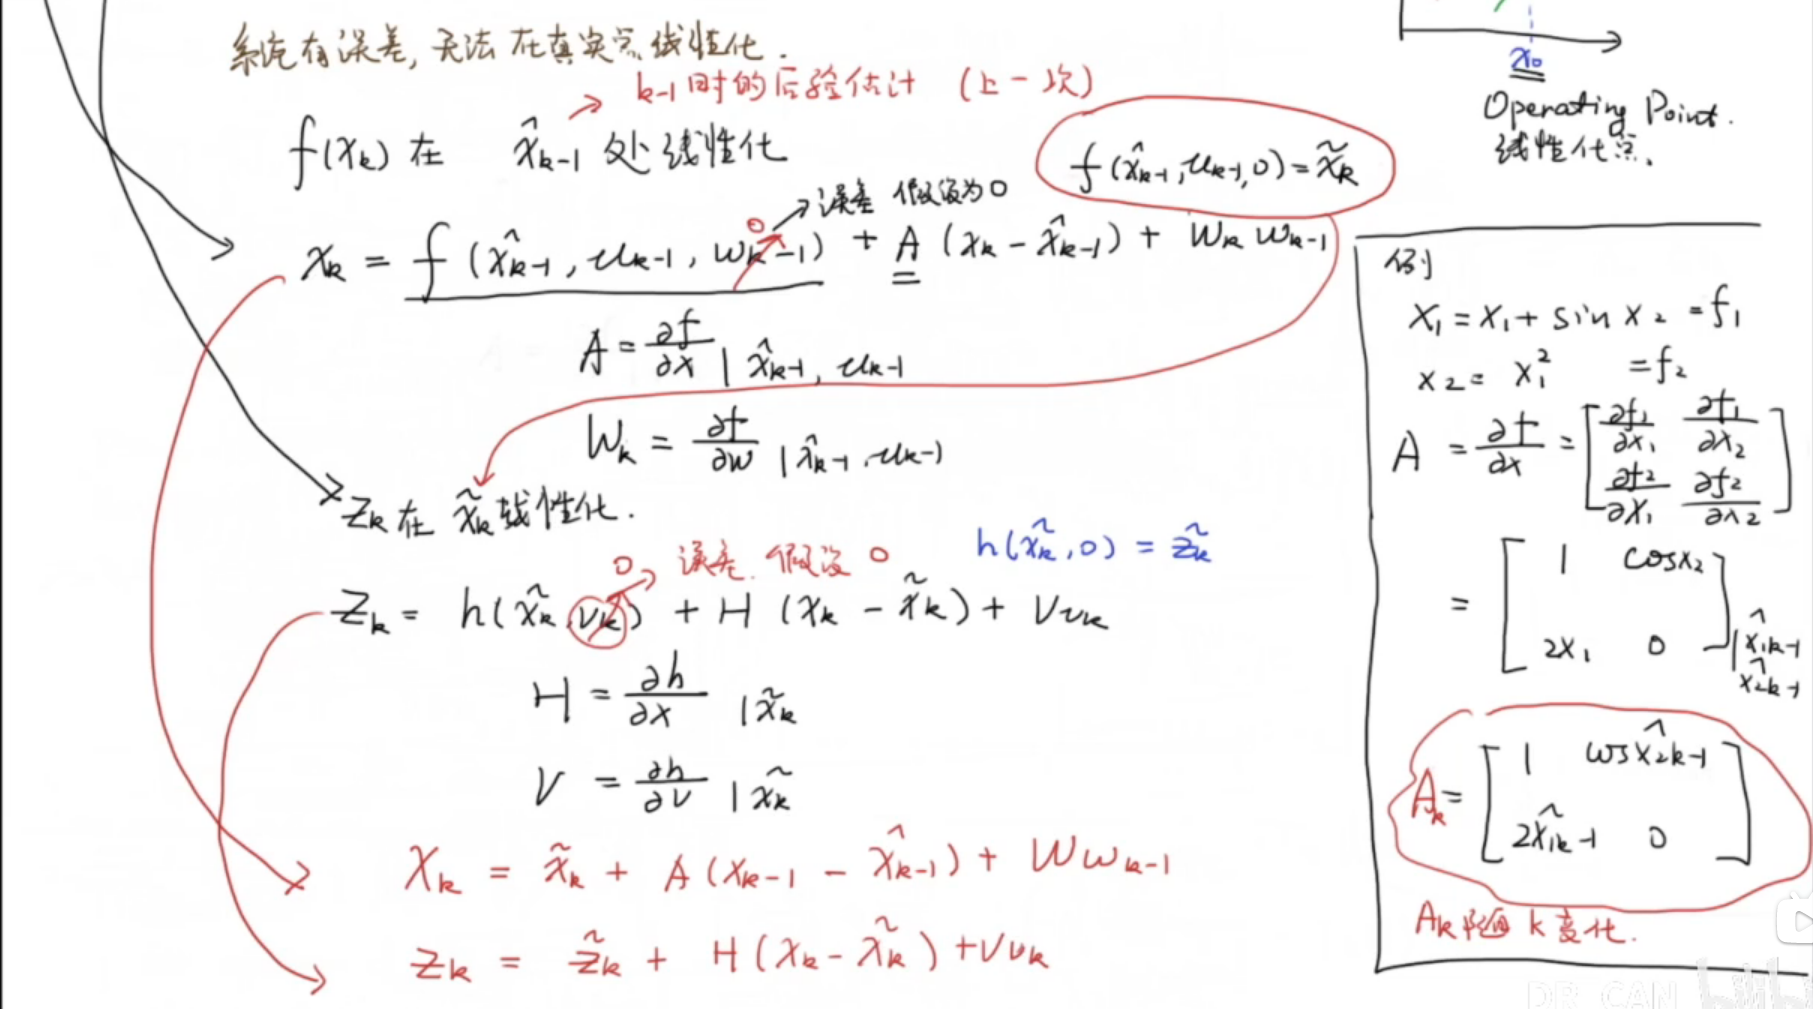 系统有误差, 无法在真实点线性化.
k-1时的后验估计 (上一次)
f(xₖ) 在 x̂ₖ₋₁ 处线性化
f(x̂ₖ₋₁, uₖ₋₁, 0) = x̃ₖ
0 误差 假设为0
xₖ = f(x̂ₖ₋₁, uₖ₋₁, wₖ₋₁) + A(xₖ - x̂ₖ₋₁) + Wₖwₖ₋₁
A = ∂f/∂x | x̂ₖ₋₁, uₖ₋₁
Wₖ = ∂f/∂w | x̂ₖ₋₁, uₖ₋₁
Zₖ在 x̃ₖ 线性化.
0 误差. 假设 0
h(x̃ₖ, 0) = z̃ₖ
Zₖ = h(x̃ₖ, vₖ) + H(xₖ - x̃ₖ) + Vvₖ
H = ∂h/∂x | x̃ₖ
V = ∂h/∂v | x̃ₖ
Xₖ = x̃ₖ + A(xₖ₋₁ - x̂ₖ₋₁) + Wwₖ₋₁
Zₖ = z̃ₖ + H(xₖ - x̃ₖ) + Vvₖ
x₀
Operating Point.
线性化点.
例
x₁ = x₁ + sin x₂ = f₁
x₂ = x₁² = f₂
A = ∂f/∂x = [∂f₁/∂x₁ ∂f₁/∂x₂
∂f₂/∂x₁ ∂f₂/∂x₂]
= [1 cosx₂
2x₁ 0] | x̂₁ₖ₋₁
x̂₂ₖ₋₁
Aₖ = [1 cosx̂₂ₖ₋₁
2x̂₁ₖ₋₁ 0]
Aₖ随 k 变化.
DR_CAN